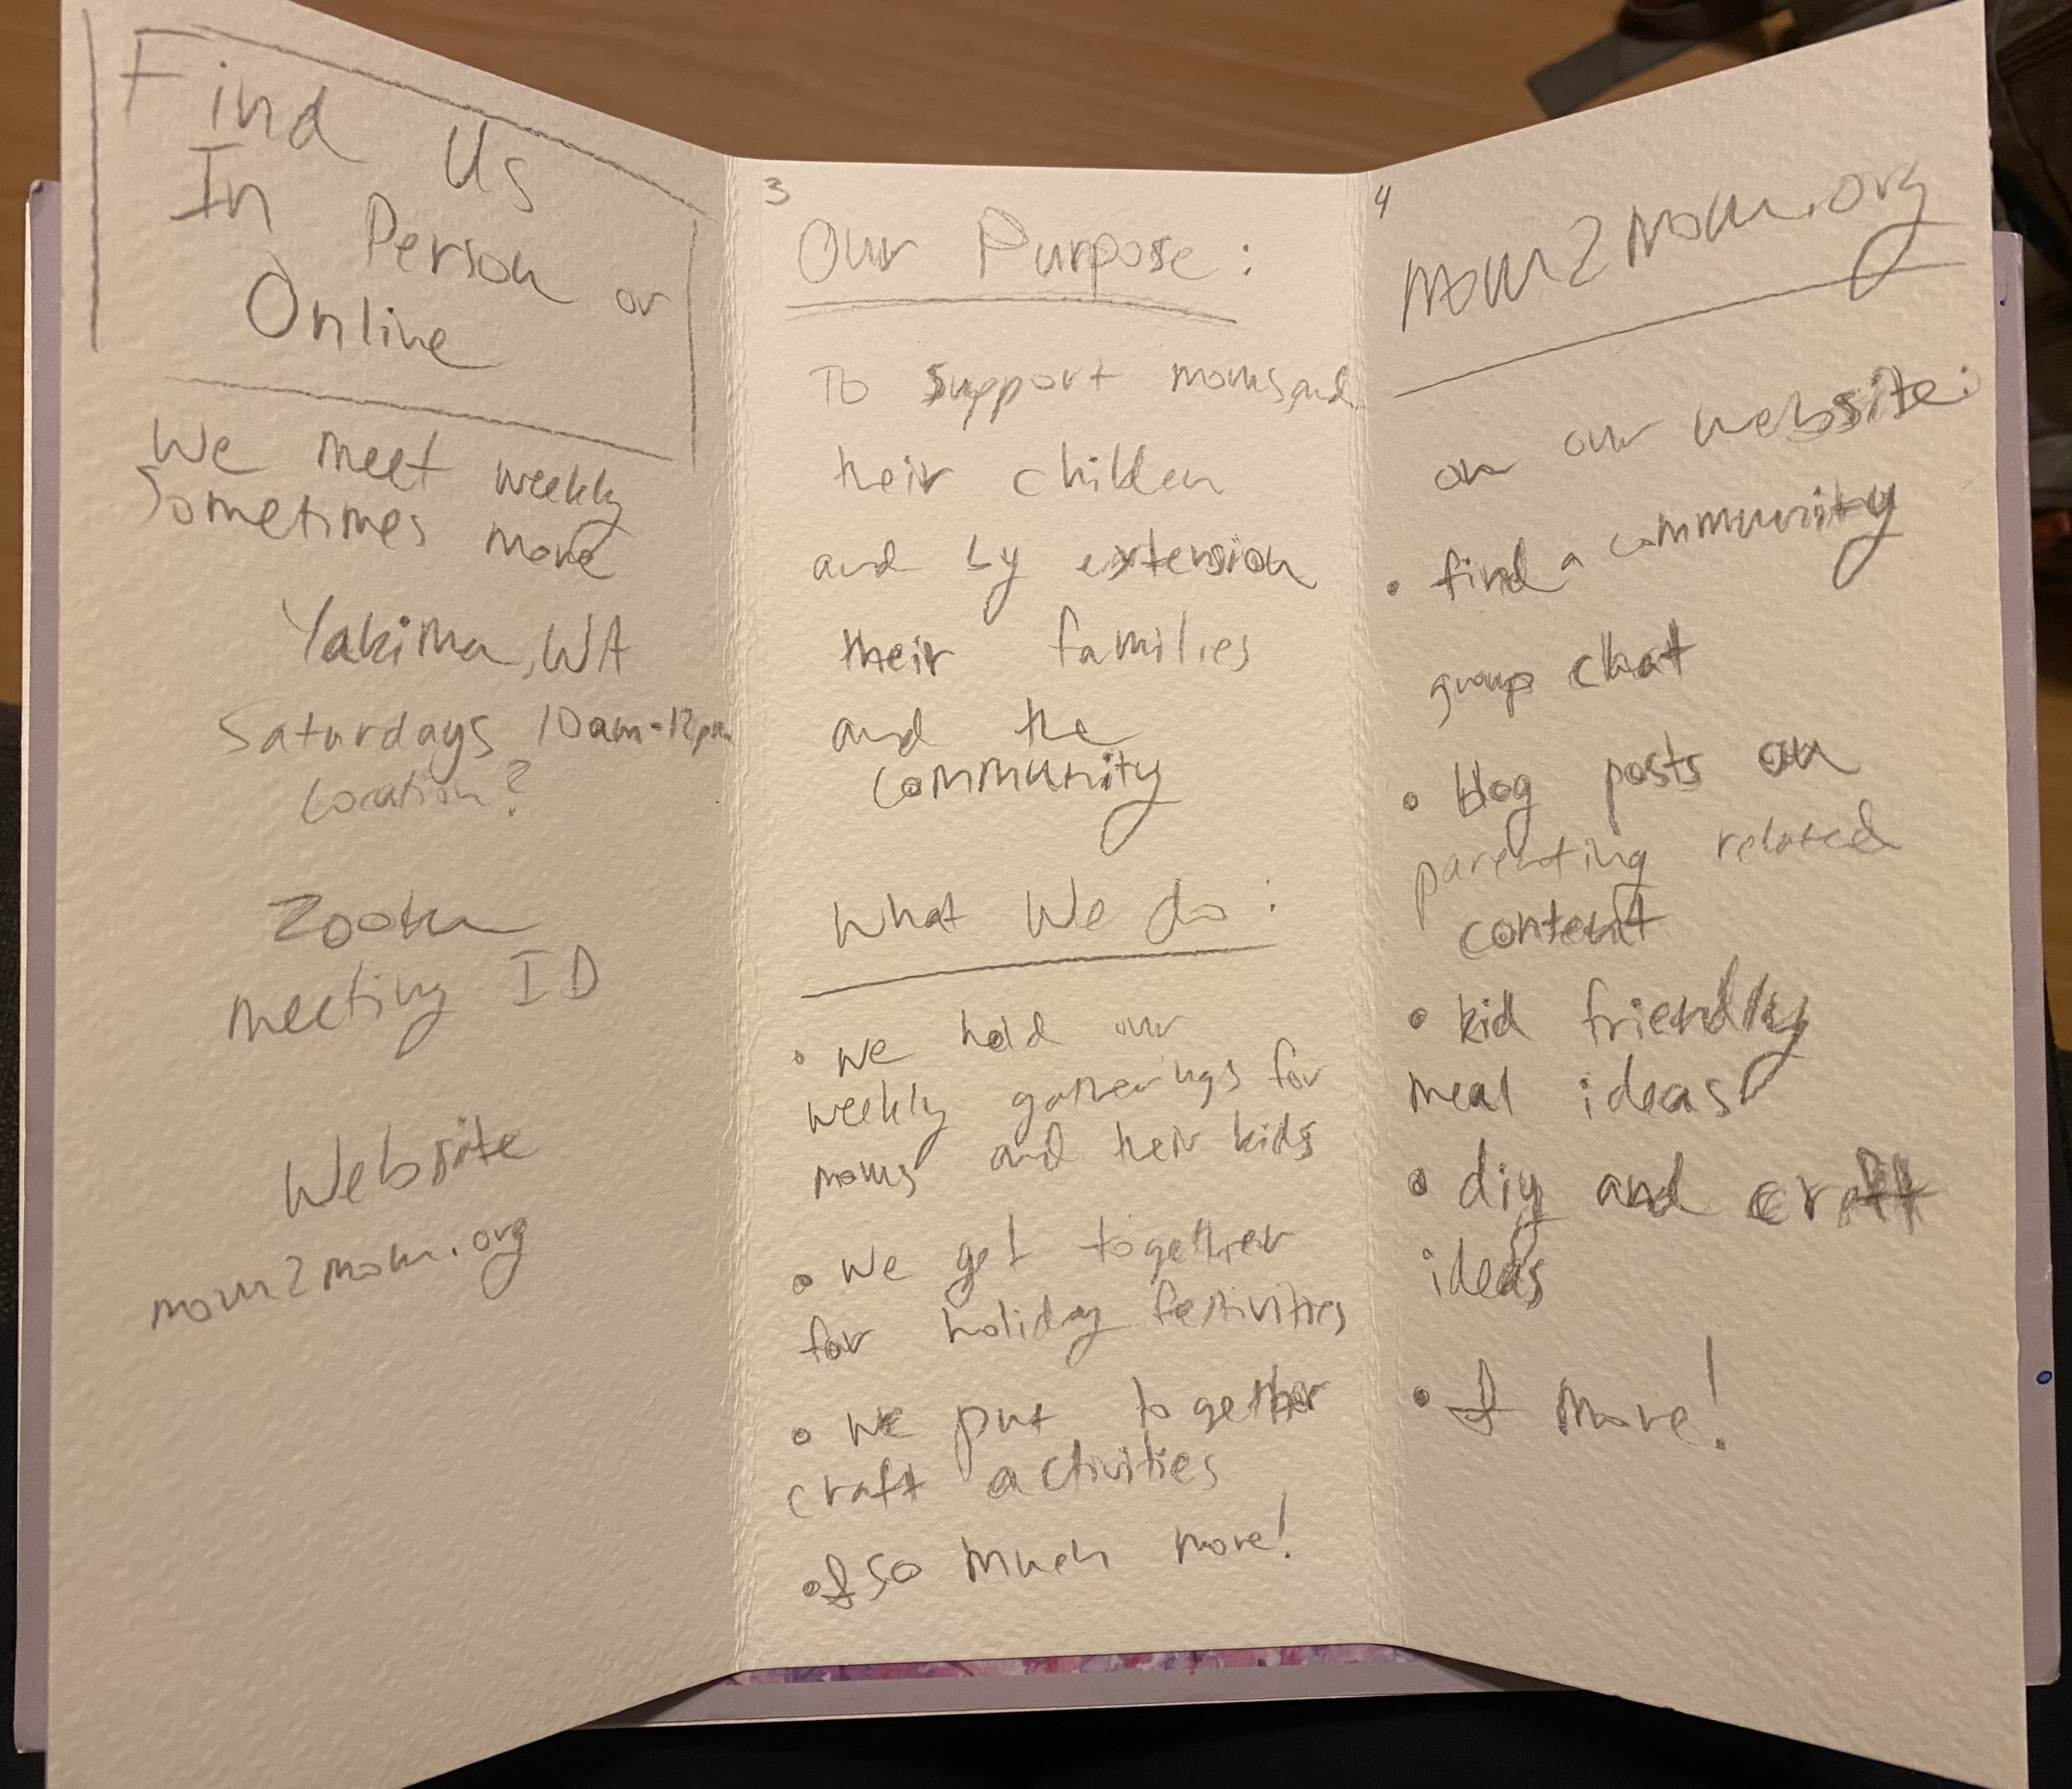 Find Us
In Person or
Online
We meet weekly
Sometimes more
Yakima, WA
Saturdays 10am-12pm
Location?
Zoom
meeting ID
Website
mom2mom.org
3
Our Purpose:
To support moms and
their children
and by extension
their families
and the
community
What We do:
• we hold our
weekly gatherings for
moms and their kids
• we get together
for holiday festivities
• we put together
craft activities
• & so much more!
4
mom2mom.org
on our website:
• find a community
group chat
• blog posts on
parenting related
content
• kid friendly
meal ideas
• diy and craft
ideas
• & more!